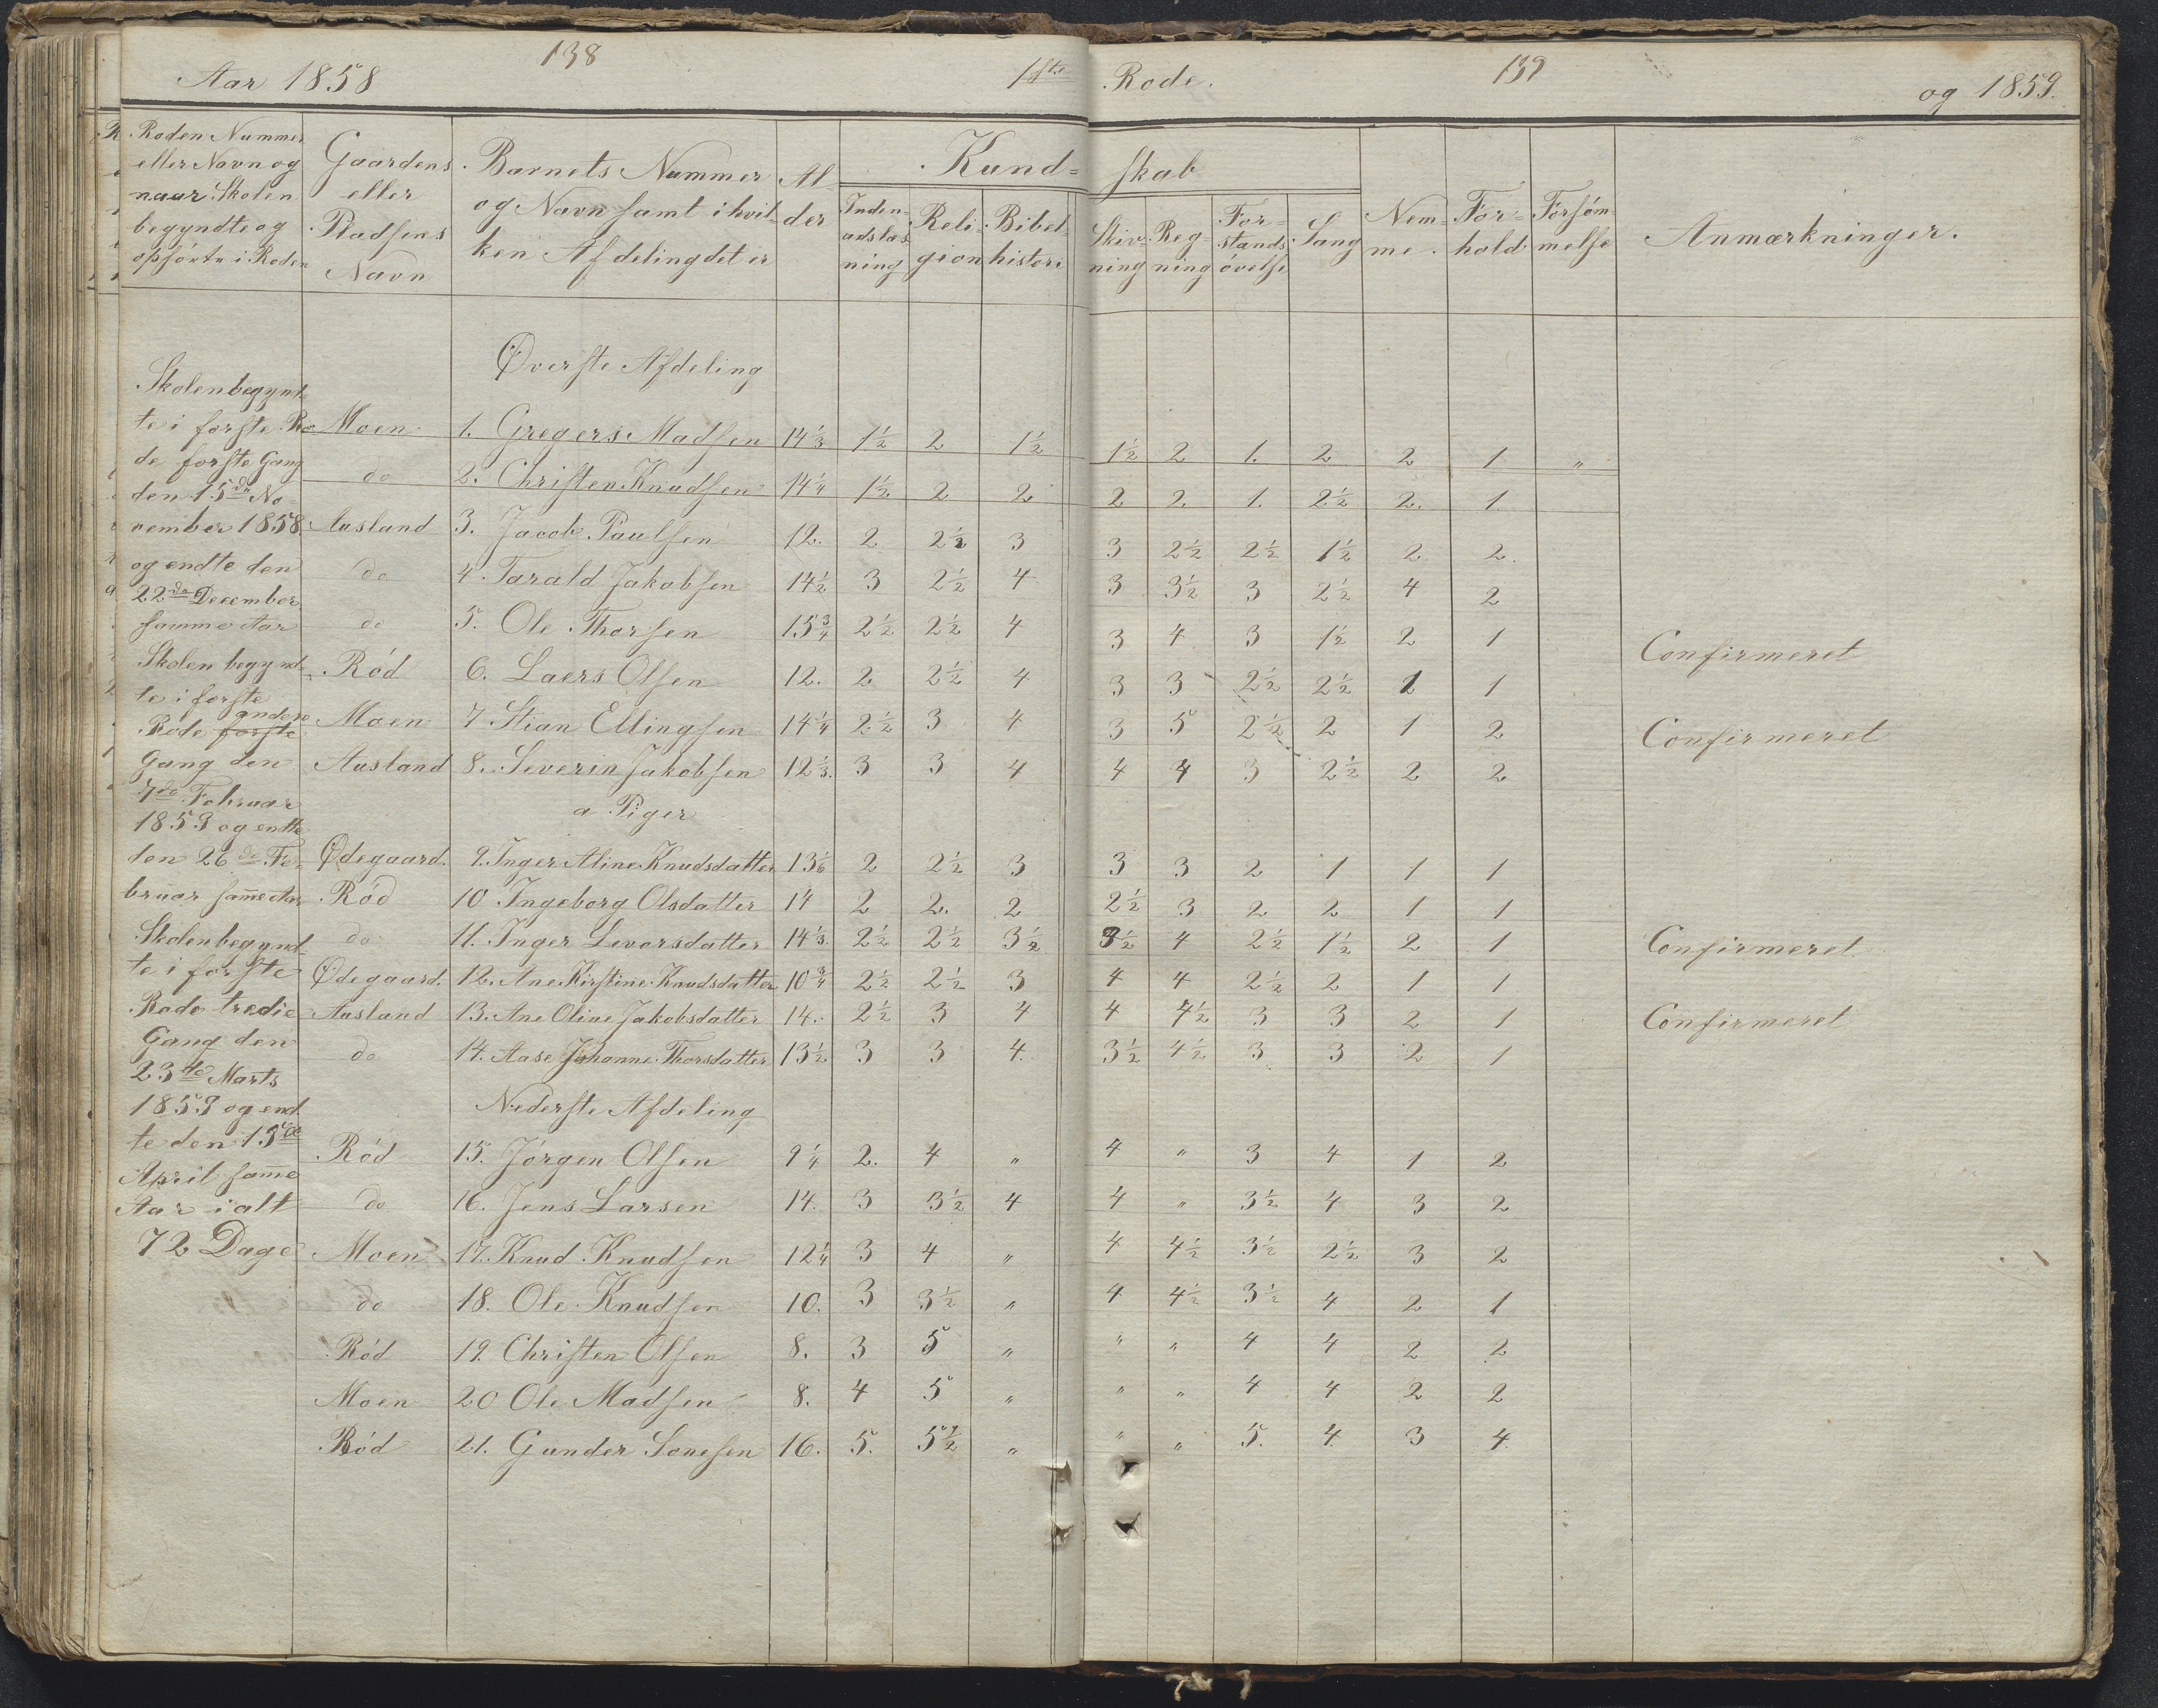 138
Aar 1858
1ste
Rode.
139
og 1859.
Roden Nummer
eller Navn og
naar Skolen
begyndte og
ophörte i Roden
Gaardens
eller
Pladsens
Navn
Barnets Nummer
og Navn samt i hvil-
ken Afdeling det er
Al-
der
Kund-
skab
Inden-
adslæs-
ning
Reli-
gion
Bibel-
histori
Skiv-
ning
Reg-
ning
For-
stands
övelse
Sang
Nem-
me.
For-
hold.
Forsöm-
melse
Anmærkninger.
Øverste Afdeling
Skolen begynt-
te i forste Ro
de forste Gang
den 15de No-
vember 1858
og endte den
22de December
samme Aar
Skolen begynd-
te i forste
anden
Rode forste
Gang den
7de Februar
1859 og endte
den 26de Fe-
bruar same Aar
Skolen begynd-
te i forste
Rode tredie
Gang den
23de Marts
1859 og end
te den 13de
April same
Aar ialt
72 Dage
Moen 1. Gregers Madsen 14 1/3 1 1/2 2 1 1/2 1 1/2 2 1. 2 2 1 "
do 2. Christen Knudsen 14 1/4 1 1/2 2 2 2 2. 1. 2 1/2 2. 1.
Ausland 3. Jacob Paulsen 12. 2 2 1/2 3 3 2 1/2 2 1/2 1 1/2 2 2.
do 4. Tarald Jakobsen 14 1/2 3 2 1/2 4 3 3 1/2 3 2 1/2 4 2
do 5. Ole Thorsen 15 3/4 2 1/2 2 1/2 4 3 4 3 1 1/2 2 1 Confirmeret
Röd 6. Laers Olsen 12. 2 2 1/2 4 3 3 2 1/2 2 1/2 1 1
Moen 7 Stian Ellingsen 14 1/4 2 1/2 3 4 3 5 2 1/2 2 1 2 Confirmeret
Ausland 8. Severin Jakobsen 12 1/3. 3 3 4 4 4 3 2 1/2 2 2
a Piger
Ødegaard. 9. Inger Aline Knudsdatter 13 1/6 2 2 1/2 3 3 3 2 1 1 1
Röd 10 Ingeborg Olsdatter 14 2 2. 2 2 1/2 3 2 2 1 1
do 11. Inger Levorsdatter 14 1/3. 2 1/2 2 1/2 3 1/2 3 1/2 4 2 1/2 1 1/2 2 1 Confirmeret
Ødegaard. 12. Ane Kirstine Knudsdatter 10 3/4 2 1/2 2 1/2 3 4 4 2 1/2 2 1 1
Ausland 13. Ane Oline Jakobsdatter 14. 2 1/2 3 4 4 4 1/2 3 3 2 1 Confirmeret
do 14. Aase Johanne Thorsdatter 13 1/2 3 3 4. 3 1/2 4 1/2 3 3 2 1
Nederste Afdeling
Röd 15. Jörgen Olsen 9 1/4 2. 4 " 4 " 3 4 1 2
do 16. Jens Larsen 14. 3 3 1/2 4 4 " 3 1/2 4 3 2
Moen 17. Knud Knudsen 12 1/4 3 4 " 4 4 1/2 3 1/2 2 1/2 3 2
do 18. Ole Knudsen 10. 3 3 1/2 " 4 4 1/2 3 1/2 4 2 1
Röd 19. Christen Olsen 8. 3 5 " " " 4 4 2 2
Moen 20 Ole Madsen 8. 4 5 " " " 4 4 2 2
Röd 21. Gunder Sonesen 16. 5. 5 1/2 " " " 5. 4 3 4